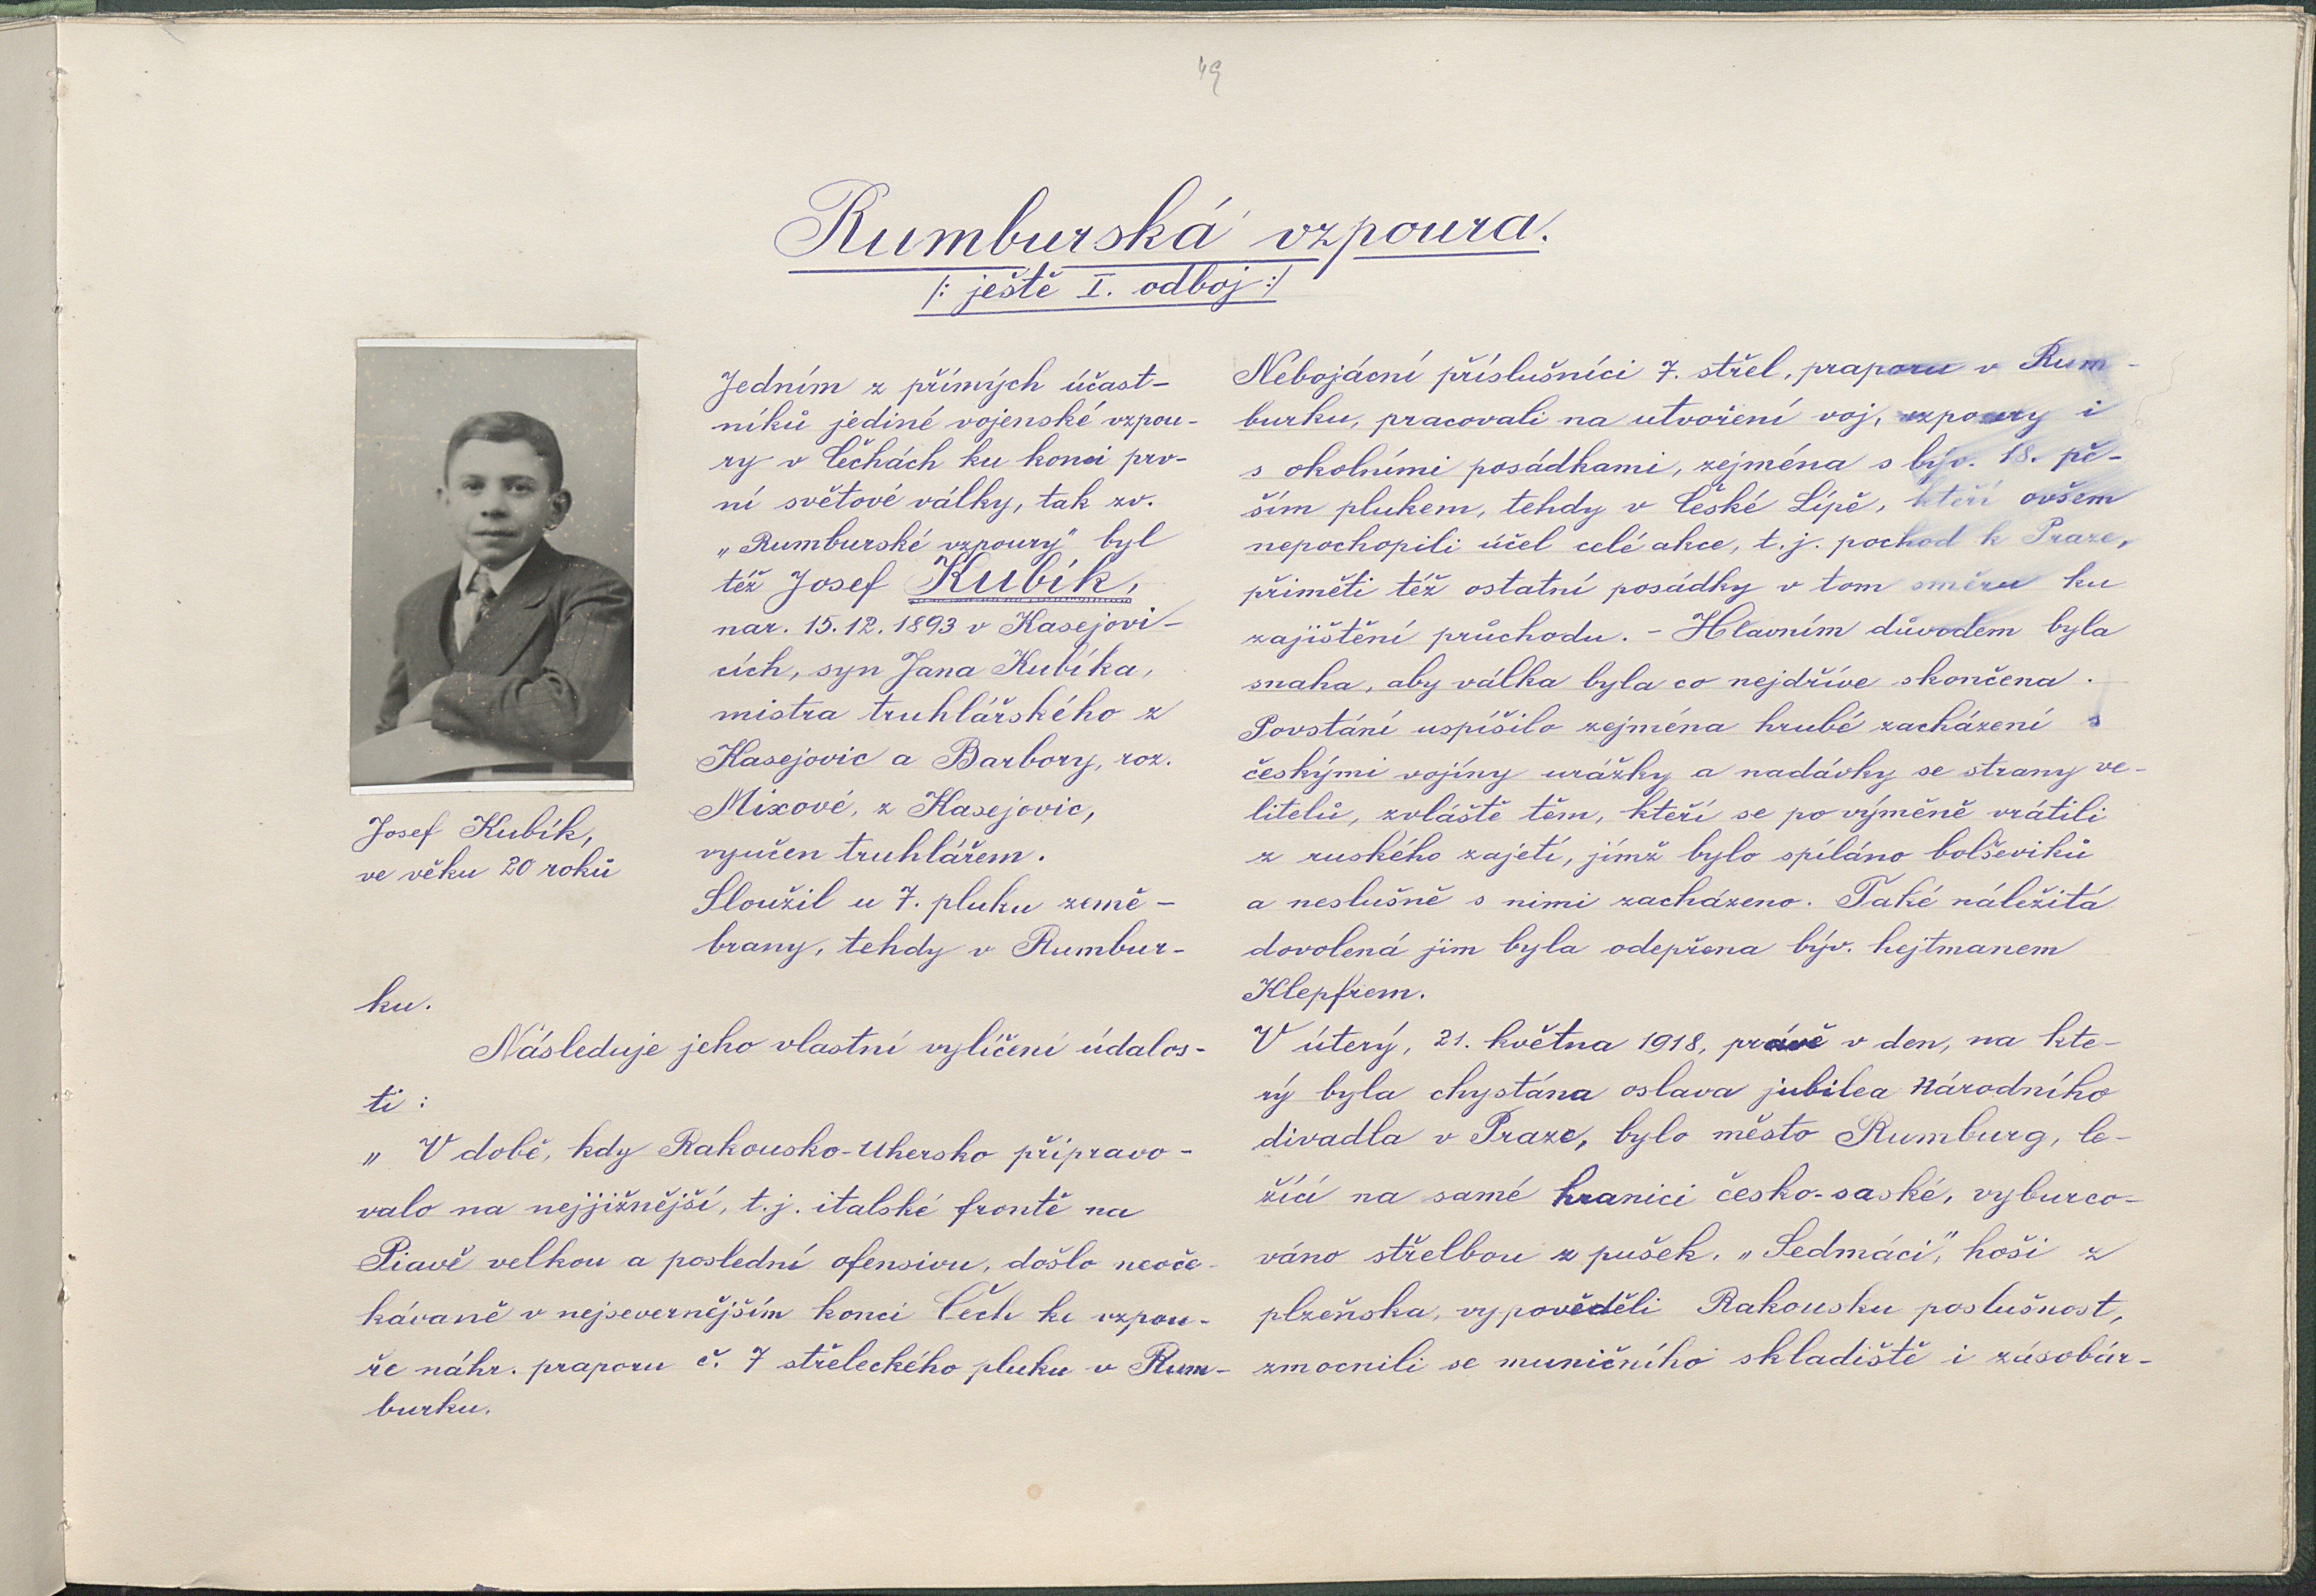 49
Rumburská vzpoura.
/: ještě I. odboj :/
Jedním z přímých účast-
níků jediné vojenské vzpou-
ry v Čechách ku konci prv-
ní světové války, tak zv.
„Rumburské vzpoury" byl
též Josef Kubík,
nar. 15.12.1893 v Kasejovi-
cích, syn Jana Kubíka,
mistra truhlářského z
Kasejovic a Barbory, roz.
Mixové, z Kasejovic,
vyučen truhlářem.
Sloužil u 7. pluku země-
brany, tehdy v Rumbur-
Josef Kubík,
ve věku 20 roků
ku.
Následuje jeho vlastní vylíčení údalos-
ti :
„ V době, kdy Rakousko-Uhersko připravo-
valo na nejjižnější, t.j. italské frontě na
Piavě velkou a poslední ofensivu, došlo neoče-
kávaně v nejsevernějším konci Čech ke vzpou-
ře náhr. praporu č. 7 střeleckého pluku v Rum-
burku.
Nebojácní příslušníci 7. střel. praporu v Rum-
burku, pracovali na utvoření voj. vzpoury i
s okolními posádkami, zejména s býv. 18. pě-
ším plukem, tehdy v České Lípě, kteří ovšem
nepochopili účel celé akce, t.j. pochod k Praze,
přiměti též ostatní posádky v tom směru ku
zajištění průchodu. - Hlavním důvodem byla
snaha, aby válka byla co nejdříve skončena.
Povstání uspíšilo zejména hrubé zacházení s
českými vojíny urážky a nadávky se strany ve-
litelů, zvláště těm, kteří se po výměně vrátili
z ruského zajetí, jímž bylo spíláno bolševiků
a neslušně s nimi zacházeno. Také náležitá
dovolená jim byla odepřena býv. hejtmanem
Klepfrem.
V úterý, 21. května 1918, právě v den, na kte-
rý byla chystána oslava jubilea Národního
divadla v Praze, bylo město Rumburg, le-
žící na samé hranici česko-saské, vyburco-
váno střelbou z pušek. „Sedmáci", hoši z
plzeňska, vypověděli Rakousku poslušnost,
zmocnili se muničního skladiště i zásobár-